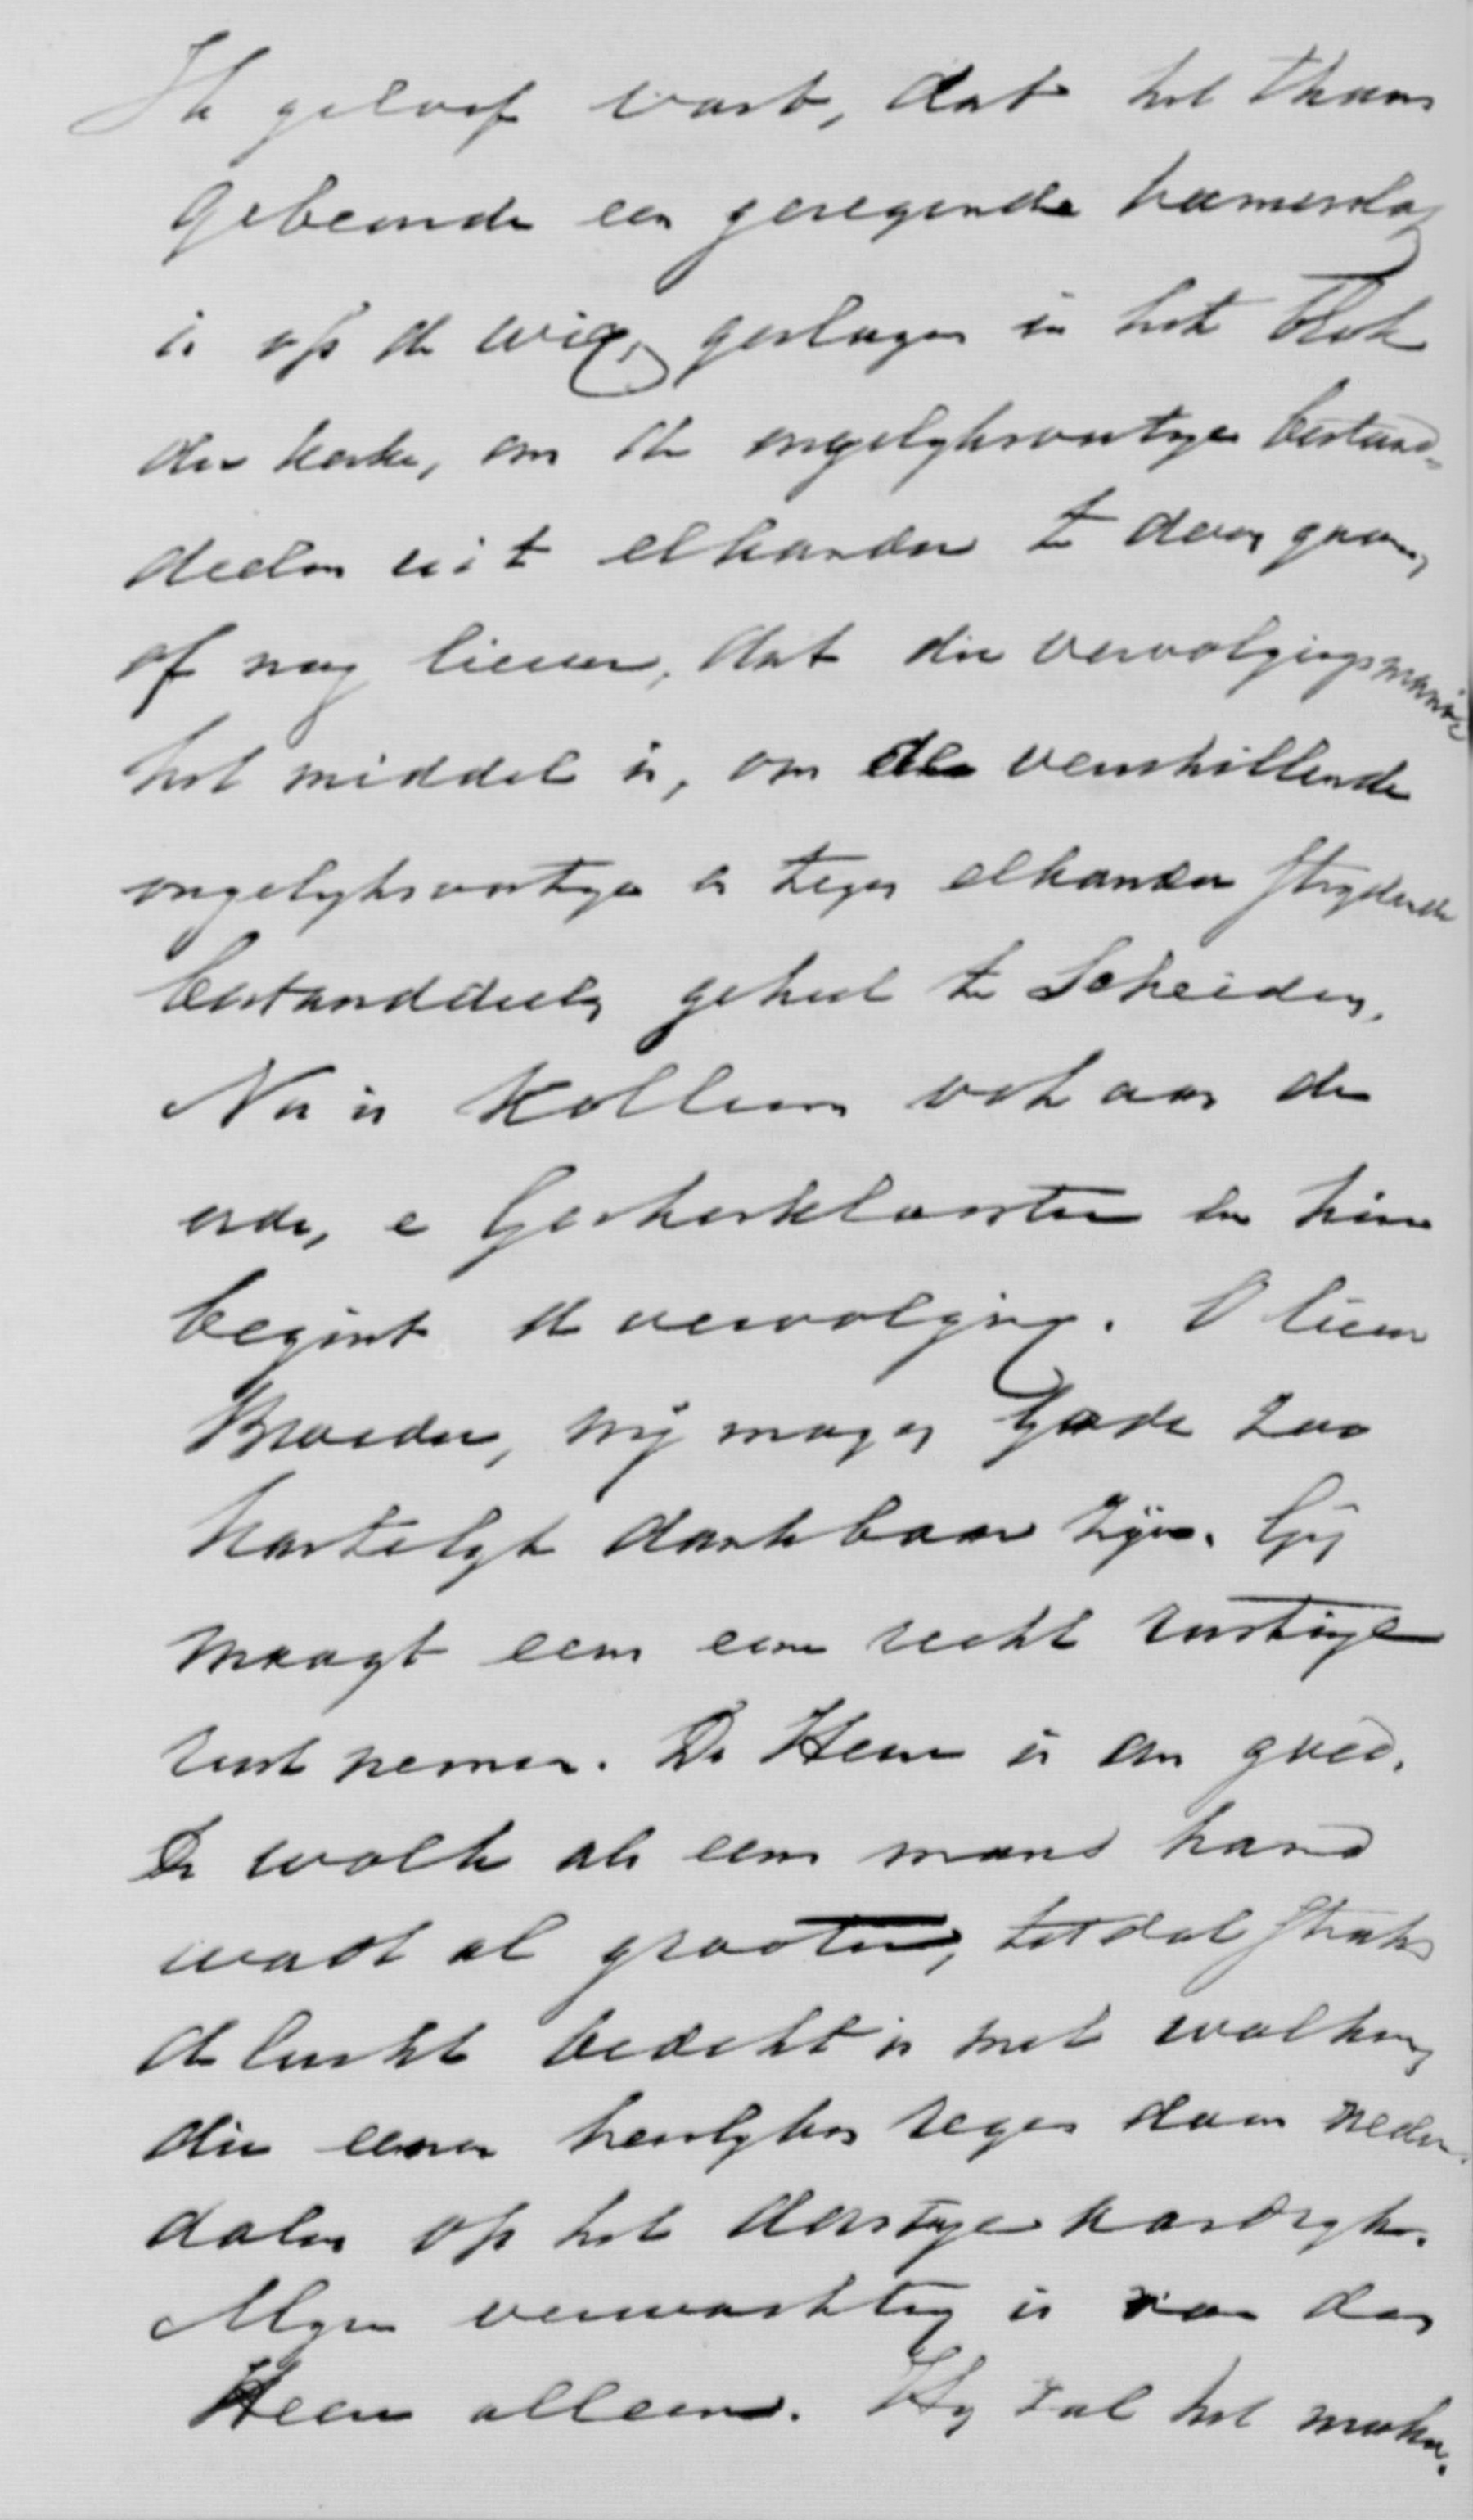 Ik geloof vast, dat het thans
gebeurde een gezegende hamerslag
is op de wig, geslagen in het blok
der kerke, om de ongelijksoortige bestand-
deelen uit elkander te doen gaan,
of nog liever, dat die vervolgingsmanie
het middel is, om de verschillende
ongelijksoortige en tegen elkander strijdende
bestanddeelen geheel te scheiden.
Nu is Kollum ook aan de
orde, e Gerkesklooster en hier
begint de vervolging. O lieve
Broeder, wij mogen Gode zoo
hartelijk dankbaar zijn. Gij
moogt eens eene recht rustige
rust nemen. De Heere is goed.
De wolk als eens mans hand
wordt al grooter, totdat straks
de lucht bedekt is met wolken,
die eenen heerlijken regen doen neder-
dalen op het dorstige aardrijk.
Mijne verwachting is van den
Heere alleen. Hij zal het maken.